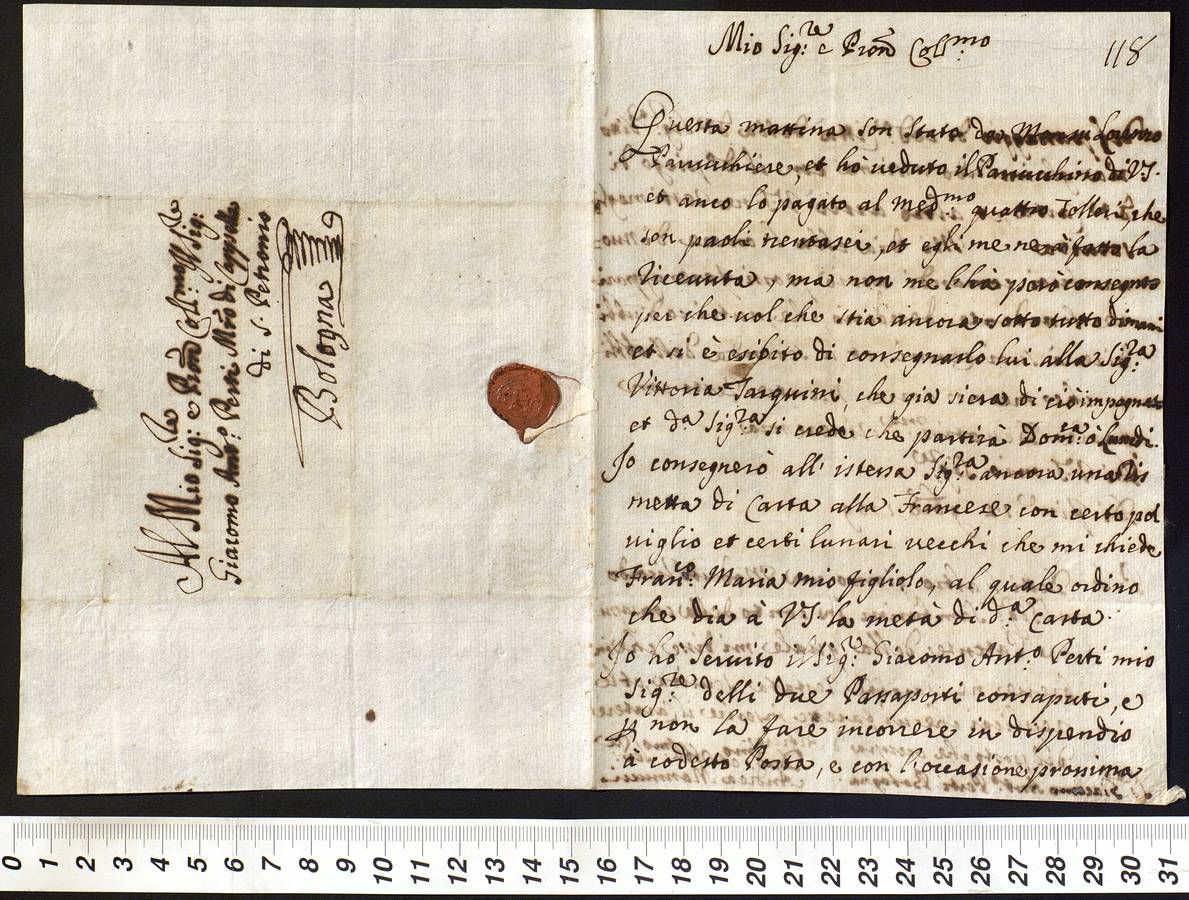 Al Mio Sig:re e Pron Coll:mo Il Sig:
Giacomo Ant:o Perti Mro di Cappella
di S. Petronio
Bologna
118
Mio Sig:re e Pron Coll:mo
Questa mattina son stato da Monsu Lorenzo
Paruchiere, et hò veduto il Paruchino di VS.
et anco lo pagato al med:mo quattro Tolleri, che
son paoli trentasei, et egli me ne à fatto la
riceuuta, ma non me l'hà però consegnato
per che uol che stia ancora sotto tutto dimani
et si è esibito di consegnarlo lui alla Sig:ra
Vittoria Tarquini, che già siera di ciò impegnato
et d:a Sig:ra si crede che partirà Dom:ca ò Lundi.
Io consegnerò all' istessa Sig:ra ancora una Ris
metta di Carta alla Francese con certo pol
viglio et certi lunari vecchi che mi chiede
Fran:co Maria mio figliolo, al quale ordino
che dia à VS. la metà di d:a Carta.
Io hò seruito il Sig:r Giacomo Ant:o Perti mio
Sig:re delli due Passaporti consaputi, e
p non la fare incorrere in dispendio
à codesta Posta, e con l'occasione prossima
0 1 2 3 4 5 6 7 8 9 10 11 12 13 14 15 16 17 18 19 20 21 22 23 24 25 26 27 28 29 30 31